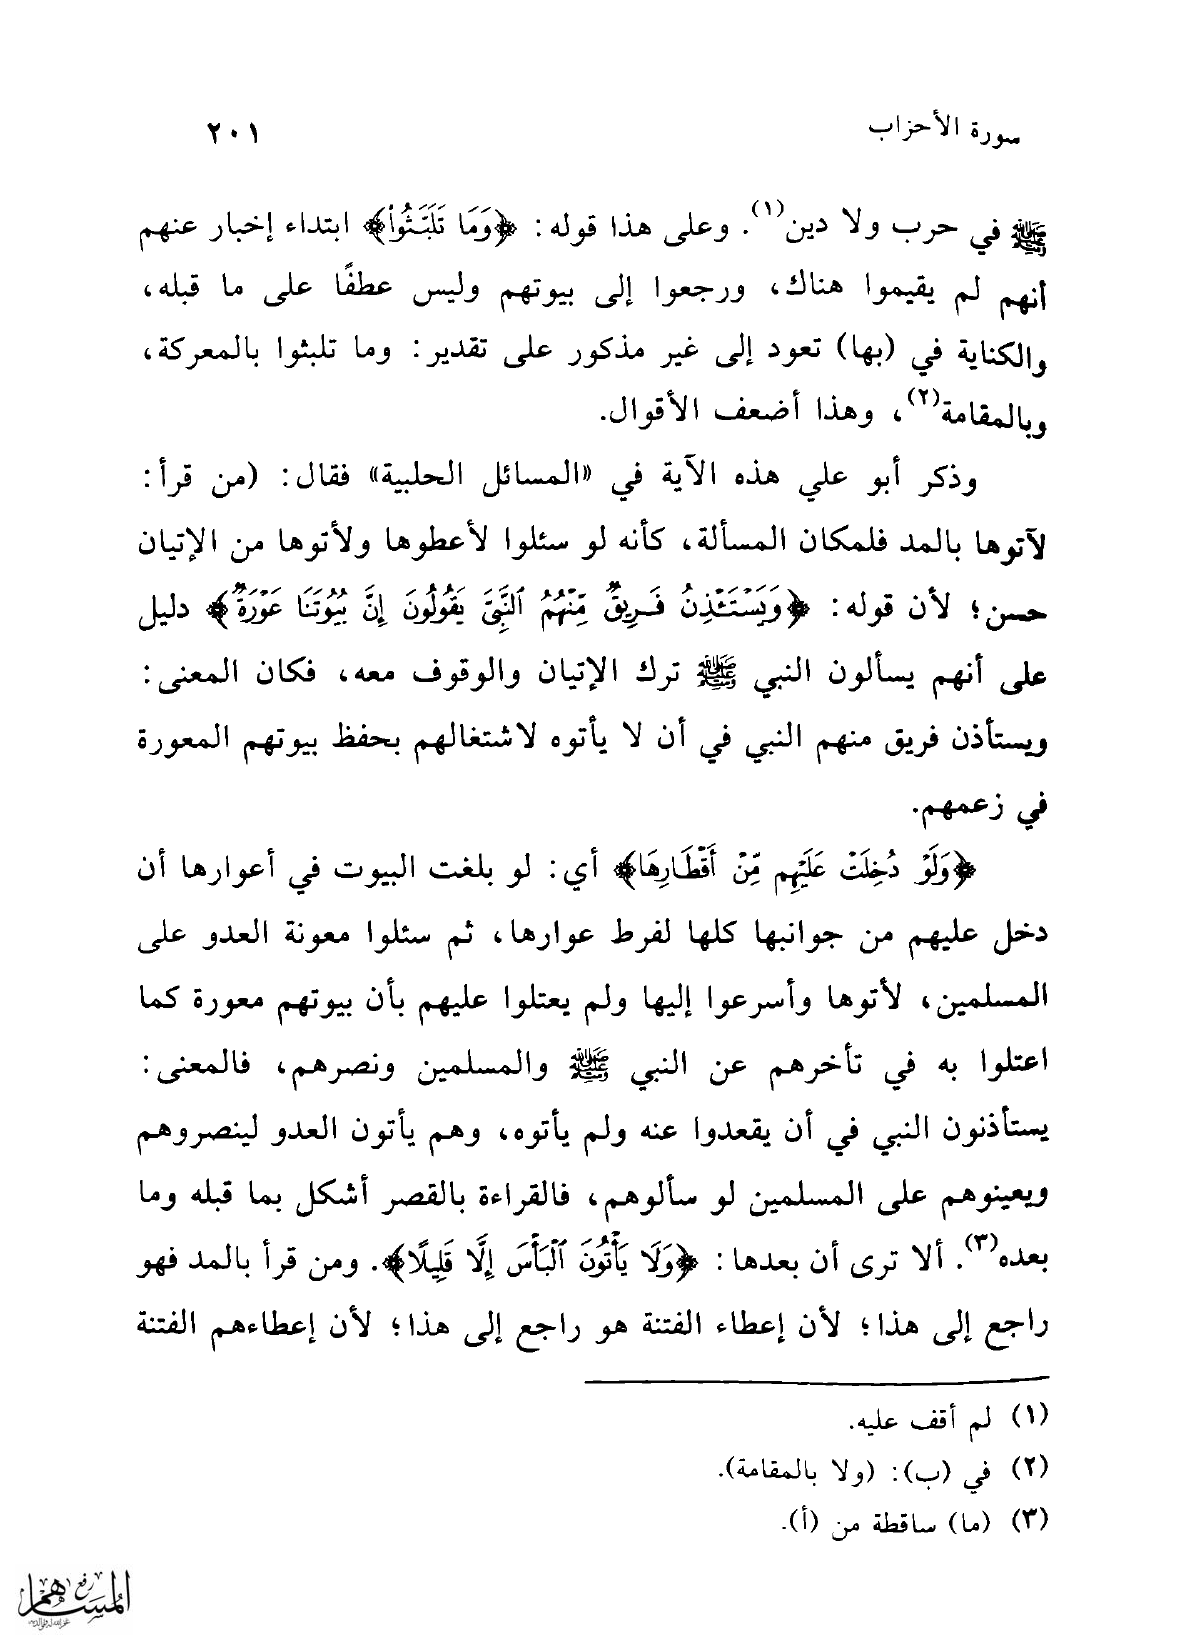 سورة الأحزاب ٢٠١
ﷺ في حرب ولا دين(١). وعلى هذا قوله: ﴿وَمَا تَلَبَّثُوا۟﴾ ابتداء إخبار عنهم
أنهم لم يقيموا هناك، ورجعوا إلى بيوتهم وليس عطفًا على ما قبله،
والكناية في (بها) تعود إلى غير مذكور على تقدير: وما تلبثوا بالمعركة،
وبالمقامة(٢)، وهذا أضعف الأقوال.
وذكر أبو علي هذه الآية في «المسائل الحلبية» فقال: (من قرأ:
لآتوها بالمد فلمكان المسألة، كأنه لو سئلوا لأعطوها ولأتوها من الإتيان
حسن؛ لأن قوله: ﴿وَيَسْتَـْٔذِنُ فَرِيقٌ مِّنْهُمُ ٱلنَّبِىَّ يَقُولُونَ إِنَّ بُيُوتَنَا عَوْرَةٌ﴾ دليل
على أنهم يسألون النبي ﷺ ترك الإتيان والوقوف معه، فكان المعنى:
ويستأذن فريق منهم النبي في أن لا يأتوه لاشتغالهم بحفظ بيوتهم المعورة
في زعمهم.
﴿وَلَوْ دُخِلَتْ عَلَيْهِم مِّنْ أَقْطَارِهَا﴾ أي: لو بلغت البيوت في أعوارها أن
دخل عليهم من جوانبها كلها لفرط عوارها، ثم سئلوا معونة العدو على
المسلمين، لأتوها وأسرعوا إليها ولم يعتلوا عليهم بأن بيوتهم معورة كما
اعتلوا به في تأخرهم عن النبي ﷺ والمسلمين ونصرهم، فالمعنى:
يستأذنون النبي في أن يقعدوا عنه ولم يأتوه، وهم يأتون العدو لينصروهم
ويعينوهم على المسلمين لو سألوهم، فالقراءة بالقصر أشكل بما قبله وما
بعده(٣). ألا ترى أن بعدها: ﴿وَلَا يَأْتُونَ ٱلْبَأْسَ إِلَّا قَلِيلًا﴾. ومن قرأ بالمد فهو
راجع إلى هذا؛ لأن إعطاء الفتنة هو راجع إلى هذا؛ لأن إعطاءهم الفتنة
(١) لم أقف عليه.
(٢) في (ب): (ولا بالمقامة).
(٣) (ما) ساقطة من (أ).
رفع
المساهم